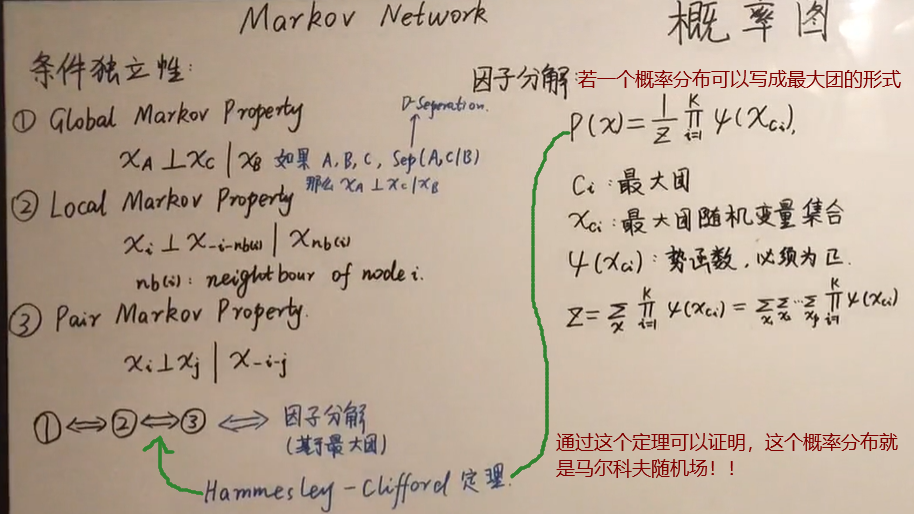 Markov Network
概率图
条件独立性:
① Global Markov Property
D-Seperation.
x_A ⊥ x_C | x_B 如果 A, B, C, Sep(A, C|B)
那么 x_A ⊥ x_C | x_B
② Local Markov Property
x_i ⊥ x_{-i-nb(i)} | x_{nb(i)}
nb(i): neightbour of node i.
③ Pair Markov Property.
x_i ⊥ x_j | x_{-i-j}
① ⇔ ② ⇔ ③ ⇔ 因子分解
(基于最大团)
Hammesley-Clifford 定理.
因子分解:若一个概率分布可以写成最大团的形式
P(x) = 1/Z ∏_{i=1}^{K} ψ(x_{Ci}),
Ci: 最大团
x_{Ci}: 最大团随机变量集合
ψ(x_{Ci}): 势函数, 必须为正.
Z = ∑_x ∏_{i=1}^{K} ψ(x_{Ci}) = ∑_{x_1} ∑_{x_2} ⋯ ∑_{x_p} ∏_{i=1}^{K} ψ(x_{Ci})
通过这个定理可以证明，这个概率分布就
是马尔科夫随机场！！